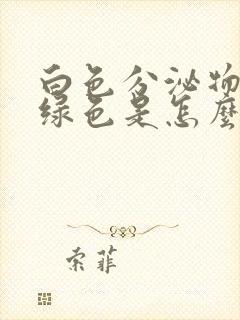 白色分泌物
绿色是怎麼
索菲